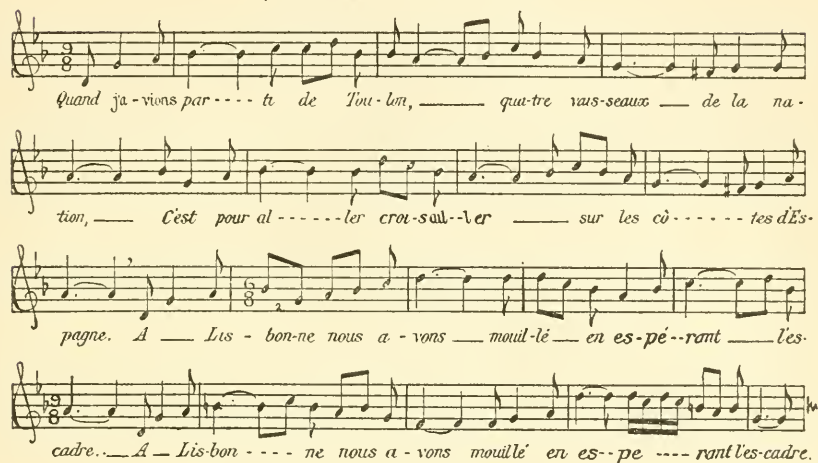 Quand j'a-vions par---- ti de Tou-lon, ____ qua-tre vais-seaux __ de la na-
tion, __ C'est pour al ------ler croi-sail--ler ____ sur les cô------ tes d'Es-
pagne. A __ Lis - bon-ne nous a - vons __ mouil-lé __ en es-pé--rant __ l'es-
cadre.. __ A __ Lis-bon ---- ne nous a - vons mouillé en es--pe ---- rant l'es-cadre.